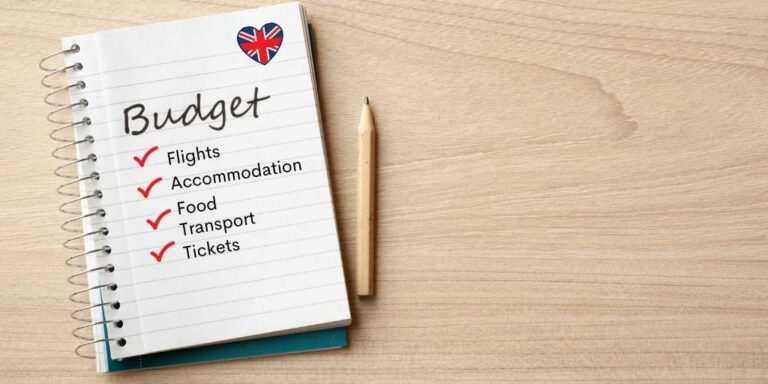 Budget
Flights
Accommodation
Food
Transport
Tickets